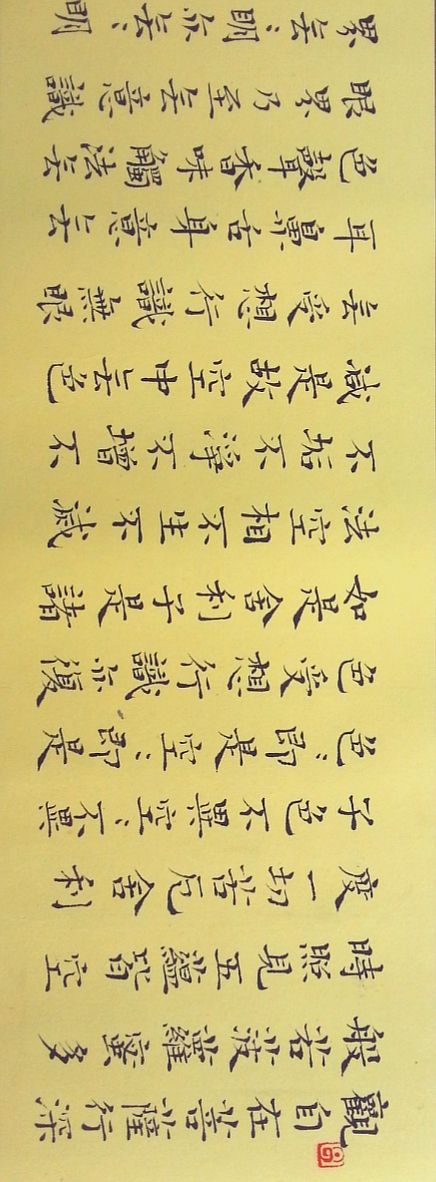 觀自在菩薩行深
般若菠蘿蜜多
時照見五蘊皆空
度一切苦厄舍利
子色不異空〻不異
色〻即是空〻即是
色受想行識亦復
如是舍利子是諸
法空相不生不滅
不垢不淨不增不
減是故空中无色
无受想行識無眼
耳鼻舌身意无
色聲香味觸法无
眼界乃至无意識
界无〻明亦无〻明